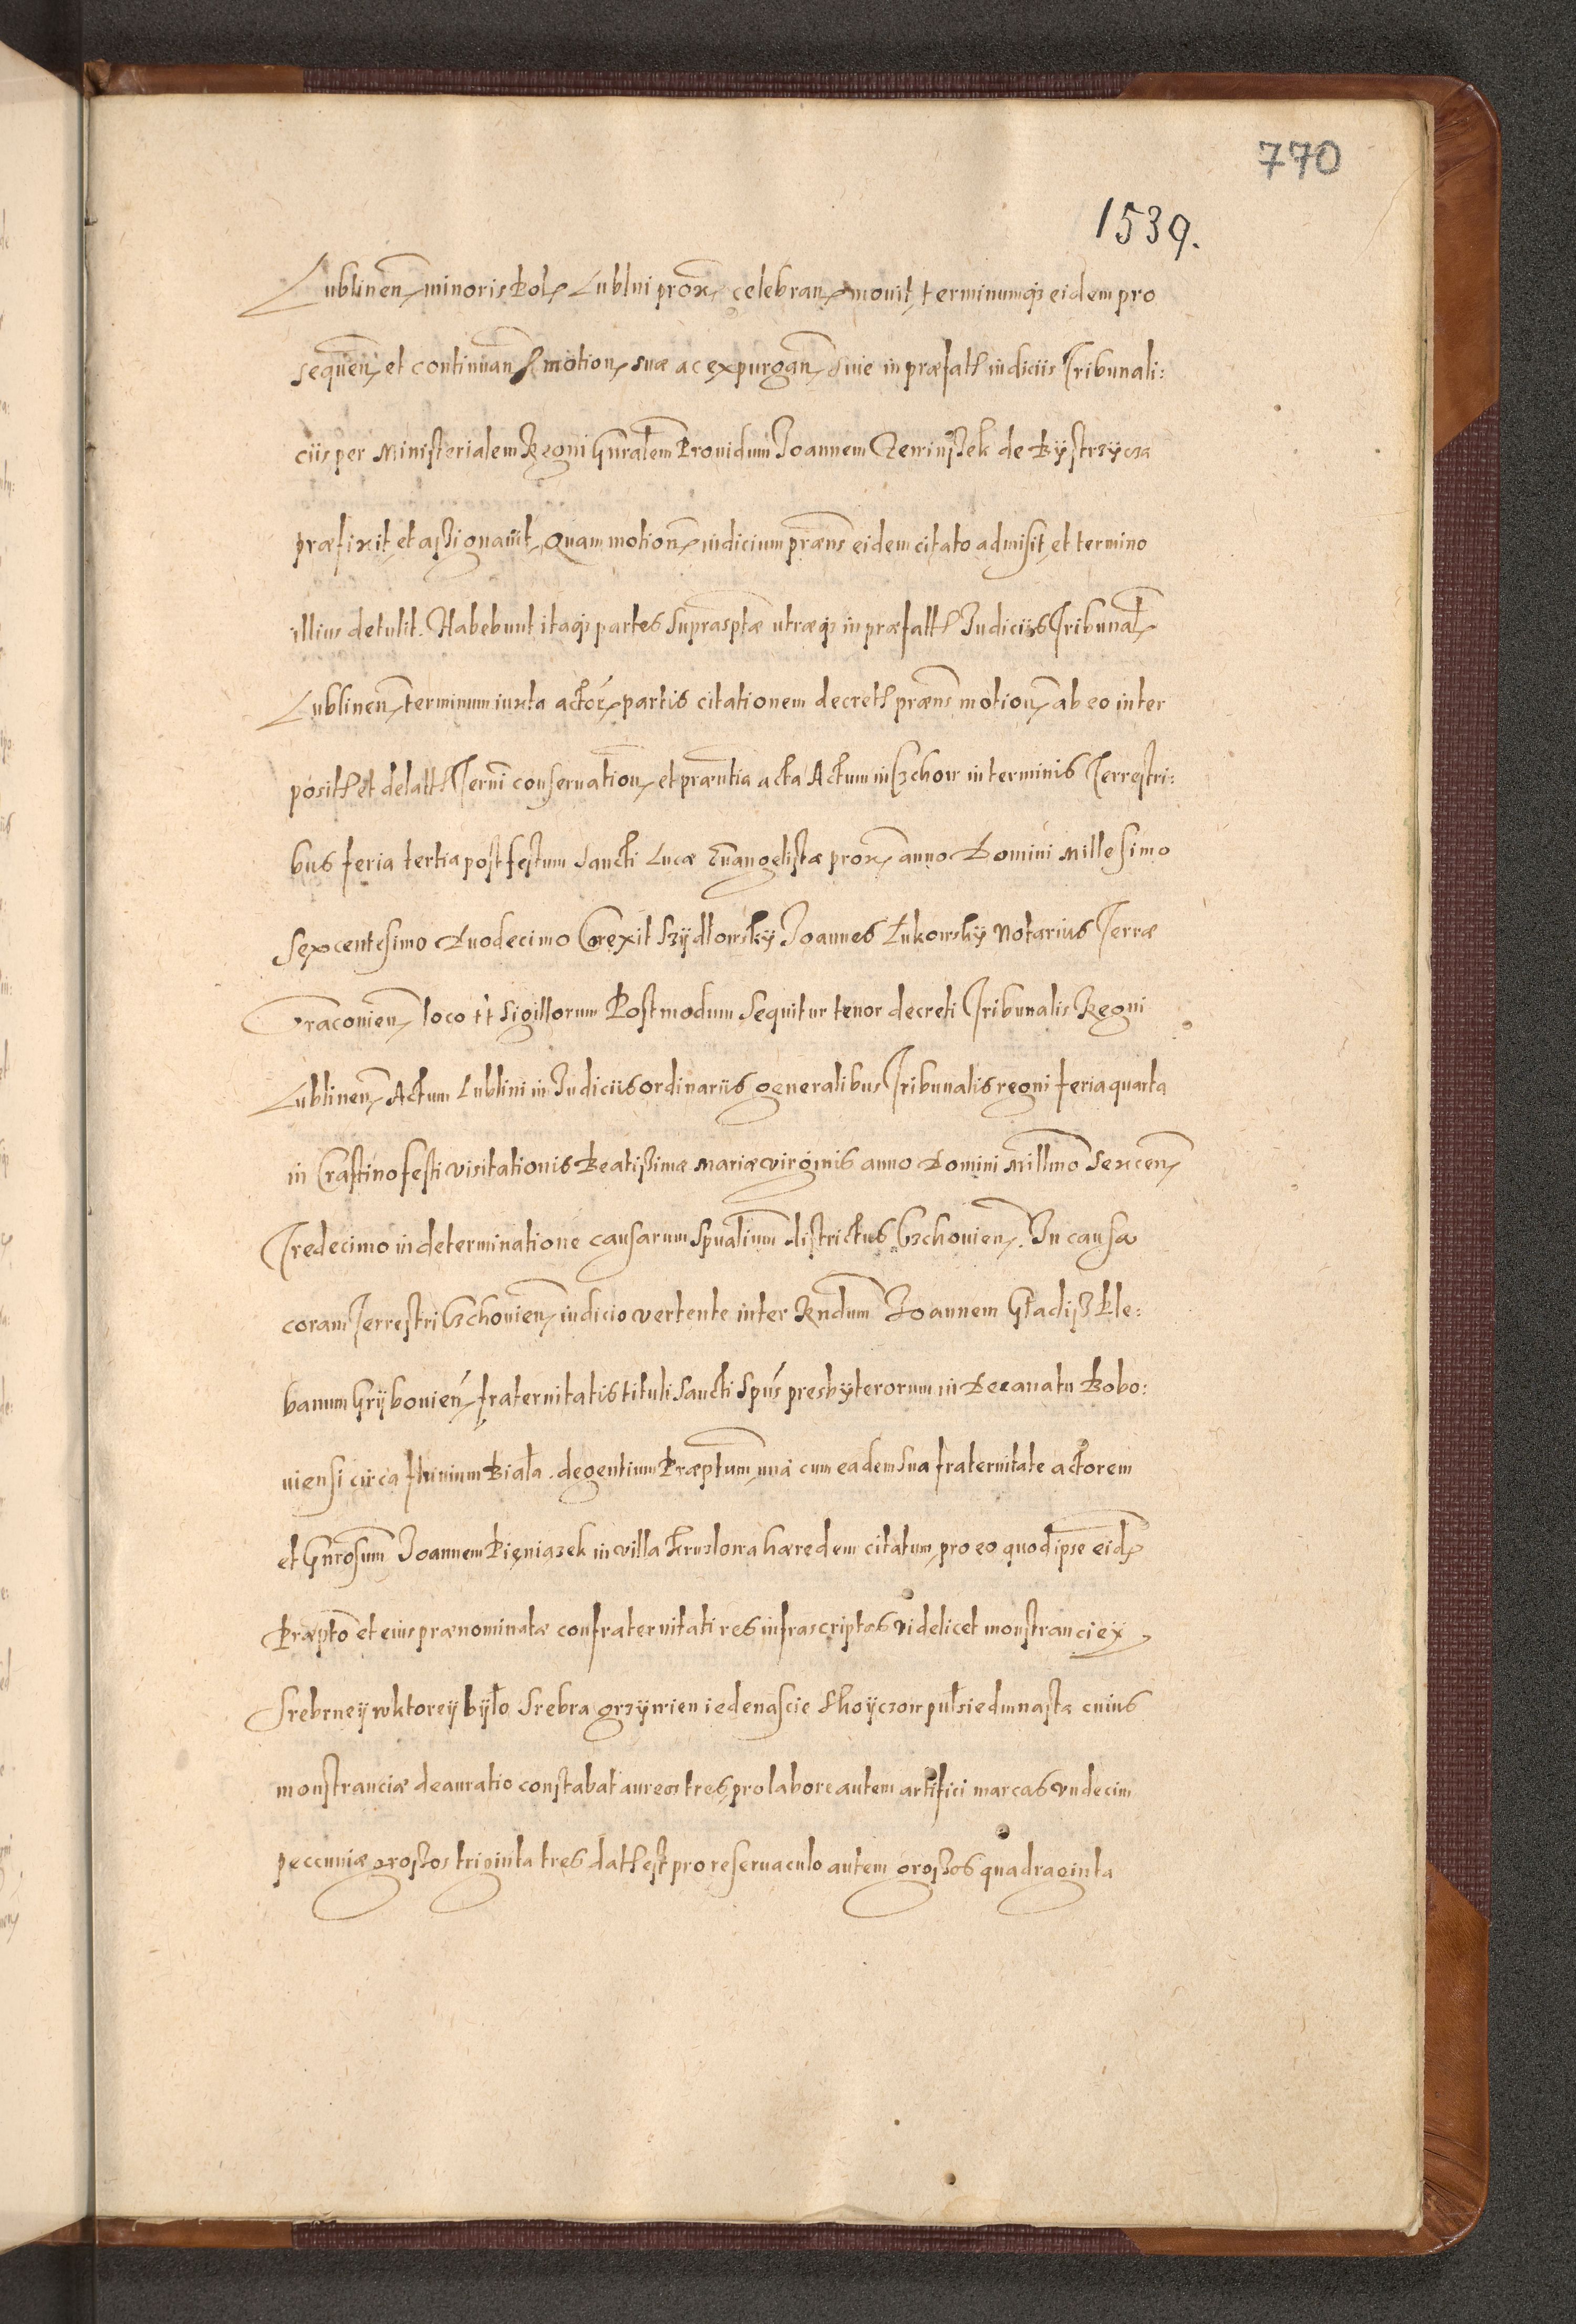 770
1539.
Lublinen minoris Pol Lublini prox celebran movit, terminumq3 eidem pro
sequen et continuan motion suæ ac expurgan suie in præfatt iudiciis Tribunali:
ciis per Ministerialem Regni Gnralem Providum Joannem de Bÿstrzÿcza
præfixit, et assignavit, Quam motion iudicium præns eidem citato admisit, et termino
illius detulit. Habebunt itaq3 partes suprasptæ utræq3 in præfatt Judiciis Tribunal
Lublinen terminum iuxta actor partis citationem decretj præns motion ab eo inter
posit et delatt Termi conservation et præntia acta Actum in Czchow in terminis Terrestri:
bus feria tertia post festum Sancti Lucæ Evangelistæ prox anno Domini Millesimo
Sexcentesimo Duodecimo Corexit Szÿdłowskÿ Joannes Łukowskÿ Notarius Terræ
Cracovien loco tt Sigillorum Postmodum Sequitur tenor decreti Tribunalis Regni
Lublinen Actum Lublini in Judiciis ordinariis generalibus Tribunalis regni feria quarta
in Crastino festi visitationis Beatissimæ Mariæ virginis anno Domini Millmo Sexcen
Tredecimo in determinatione causarum spualium districtus Czchovien. In causa
coram Terrestri Czchovien iudicio vertente inter Rndum Joannem Gładisz Ple:
banum Grÿbovien fraternitatis tituli Sancti Spus presbÿterorum in Decanatu Bobo:
viensi circa fluvium Biała degentium Præptum una cum eadem sua fraternitate actorem
et Gnrosum Joannem Pieniązek in villa Kruzlowa hæredem citatum, pro eo quod ipse eid
Præpto et eius prænominatæ confraternitati res infrascriptas videlicet monstranciey
Srebrney wktoreÿ bÿło srebra grzÿwien iedenascie skoÿczow pułsiedmnasta cuius
monstranciæ deauratio constabat aureos tres, pro labore autem artifici marcas undecim
peccuniæ grossos triginta tres datt est pro reservaculo autem grossos quadraginta